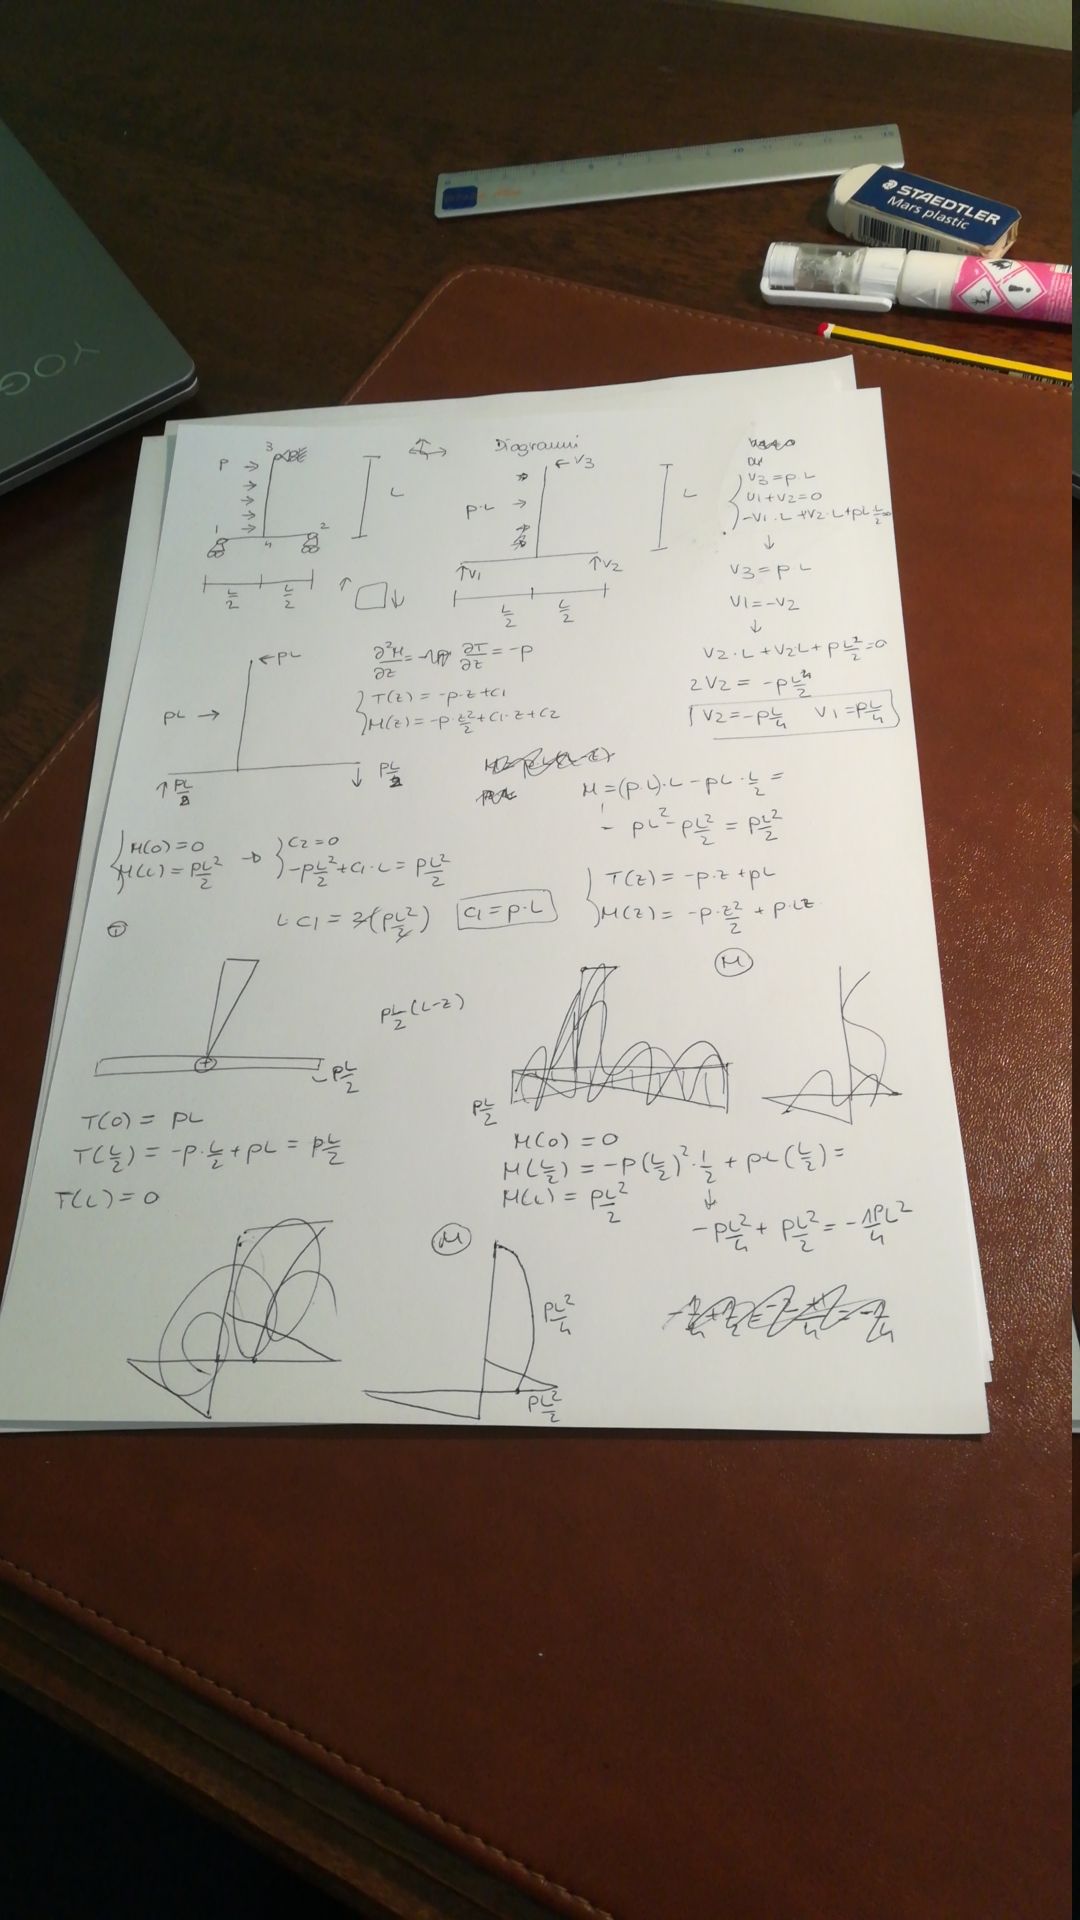 YOGA
STAEDTLER
Mars plastic
Diagrammi
3
P
L
1
2
4
L/2
L/2
← V3
P·L
L
↑V1
↑V2
L/2
L/2
V3 = P·L
V1+V2=0
-V1·L+V2·L+PL L/2=0
↓
V3 = P·L
V1=-V2
↓
V2·L+V2L+PL²/2=0
2V2 = -PL/2
V2=-PL/4 V1=PL/4
← PL
PL →
↑PL/2
↓ PL/2
∂²M/∂z = ∂T/∂z = -P
T(z) = -P·z+C1
M(z) = -P·z²/2+C1·z+C2
M=(P·L)·L-PL·L/2=
= PL²-PL²/2 = PL²/2
M(0)=0
M(L)=PL²/2
→
C2=0
-PL²/2+C1·L=PL²/2
L·C1=2(PL²/2)
C1=P·L
T(z)=-P·z+PL
M(z)=-P·z²/2+P·Lz
T
M
PL/2(L-z)
+
PL/2
PL/2
T(0) = PL
T(L/2) = -P·L/2+PL = PL/2
T(L) = 0
M(0)=0
M(L/2) = -P(L/2)²·1/2+PL(L/2)=
M(L) = PL²/2
↓
-PL²/4+PL²/2=-1PL²/4
M
PL²/4
PL²/2